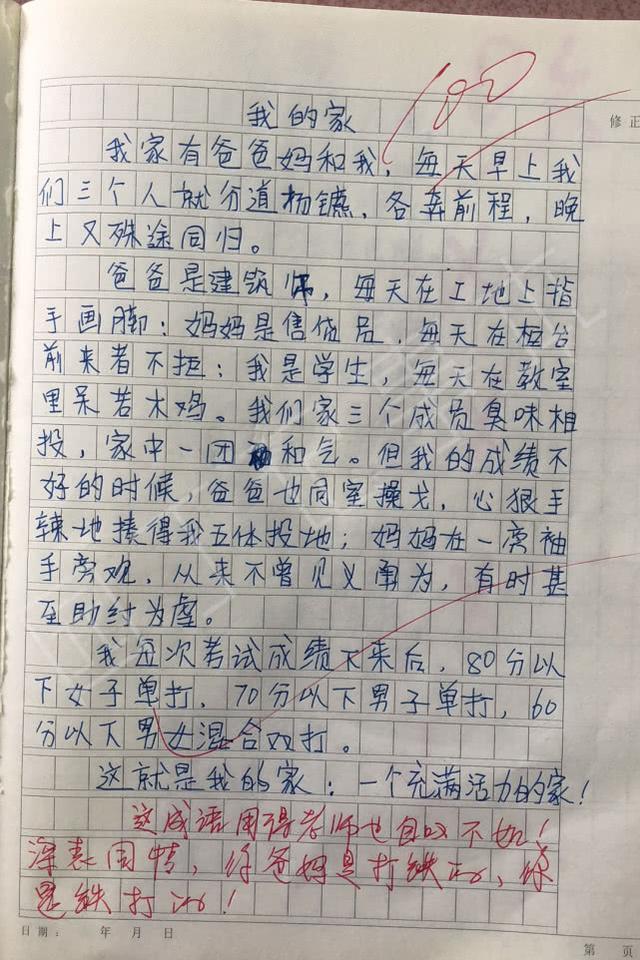 100
修正
我的家
我家有爸爸妈和我，每天早上我
们三个人就分道扬镳，各奔前程，晚
上又殊途同归。
爸爸是建筑师，每天在工地上指
手画脚；妈妈是售货员，每天在柜台
前来者不拒；我是学生，每天在教室
里呆若木鸡。我们家三个成员臭味相
投，家中一团和气。但我的成绩不
好的时候，爸爸也同室操戈，心狠手
辣地揍得我五体投地；妈妈在一旁袖
手旁观，从来不曾见义勇为，有时甚
至助纣为虐。
我每次考试成绩下来后，80分以
下女子单打，70分以下男子单打，60
分以下男女混合双打。
这就是我的家：一个充满活力的家！
这成语用得老师也自叹不如！
深表同情，你爸妈是打铁的，你
是铁打的！
日期： 年 月 日
第 页